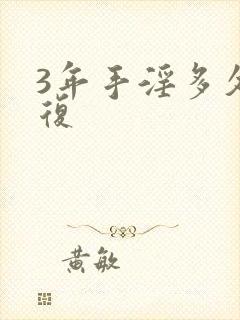 3年手淫多久
復
黄敏